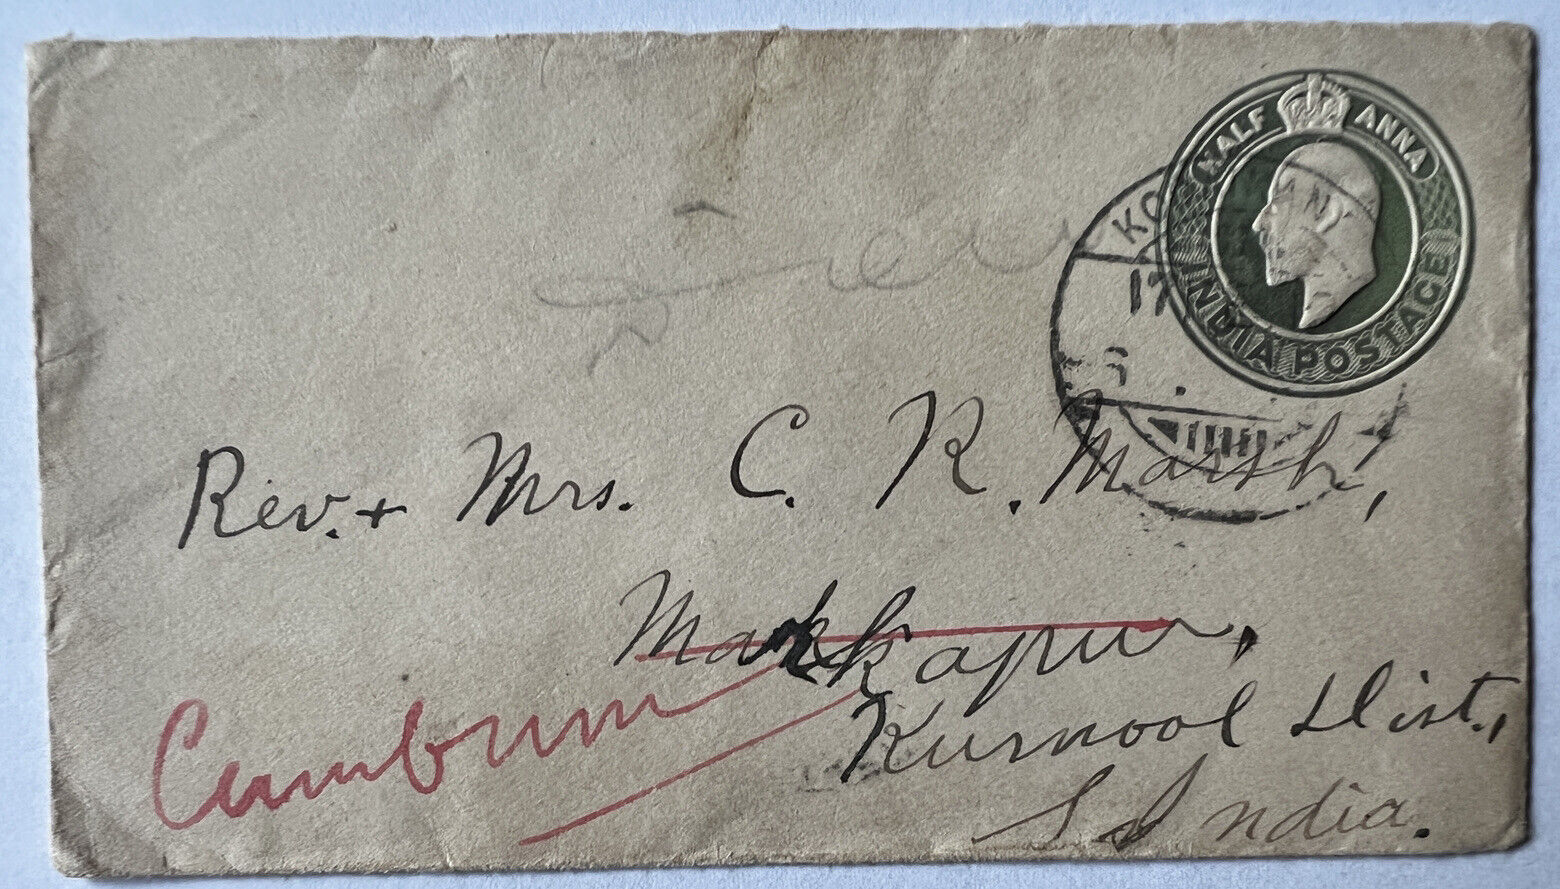 HALF ANNA
INDIA POSTAGE
17
Rev. + Mrs. C. R. Marsh,
Markapur,
Cumbum
Kurnool Dist.,
S. India.